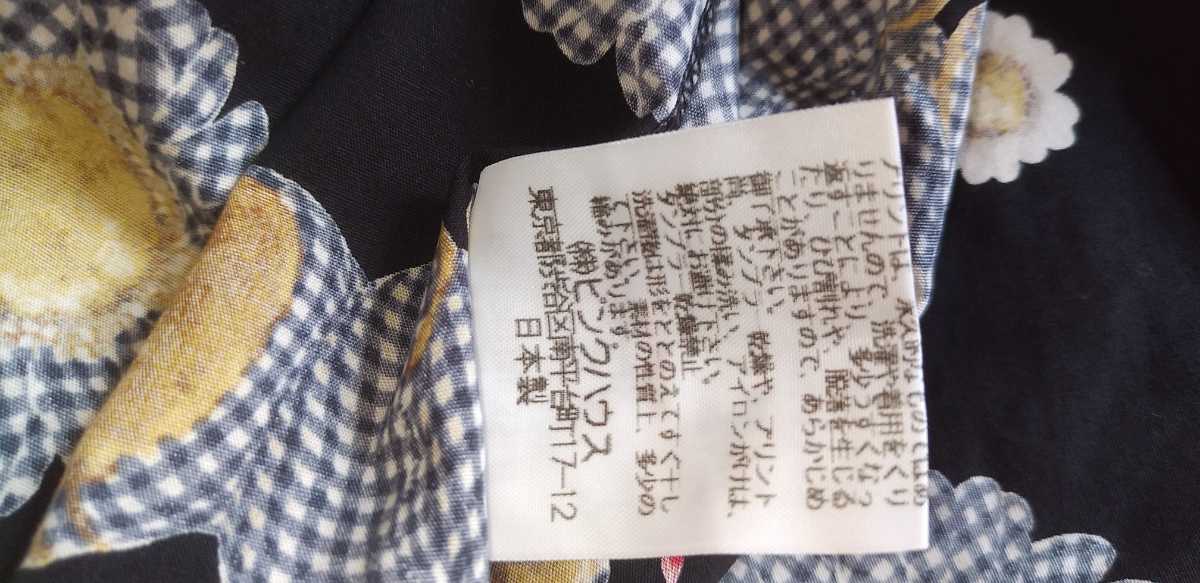 プリントは
りませんので、洗濯や着用をくり
返すことにより、多少うすくなっ
たり、ひび割れや、脱落を生じる
ことがありますので あらかじめ
御了承下さい。
尚、タンブラー乾燥や、プリント
部分のもみ洗い、アイロンがけは、
絶対にお避け下さい。
タンブラー乾燥禁止
洗濯後は形をととのえてすぐ干し
て下さい。素材の性質上、多少の
縮みがあります。
㈱ピンクハウス
東京都渋谷区南平台町17-12
日本製